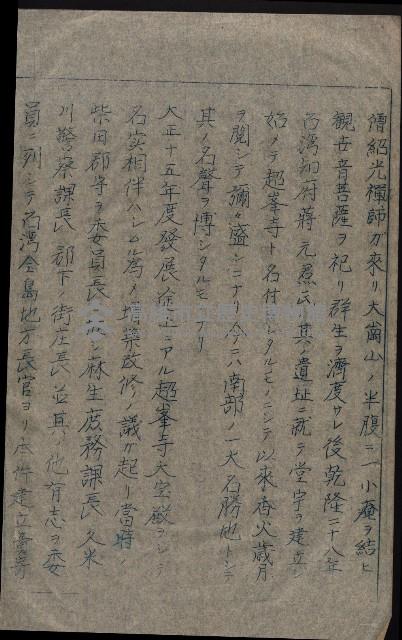 僧紹光禪師ガ來リ大崗山ノ半腹ニ一小庵ヲ結ヒ
觀世音菩薩ヲ祀リ群生ヲ濟度サレ後乾隆二十八年
台湾知府蔣元君氏其ノ遺址ニ就テ堂宇ヲ建立シ
始メテ超峯寺ト名付ケシタルモノニシテ以來香火歲月
ヲ閲シテ彌々盛ンニナリ今ハ南部ノ一大名勝地トシテ
其ノ名聲ヲ博シタルモノナリ
大正十五年度發展ノ途上ニアル超峯寺大宝殿ヲシテ
名实相伴ハシムル為メ増築改修ノ議ガ起リ當時ノ
柴田郡守ヲ委員長 麻生庶務課長 久米
川警察課長 郡下ノ街庄長並其ノ他有志ヲ委
員ニ列シテ台湾全島地方長官ヨリ 件建立寄